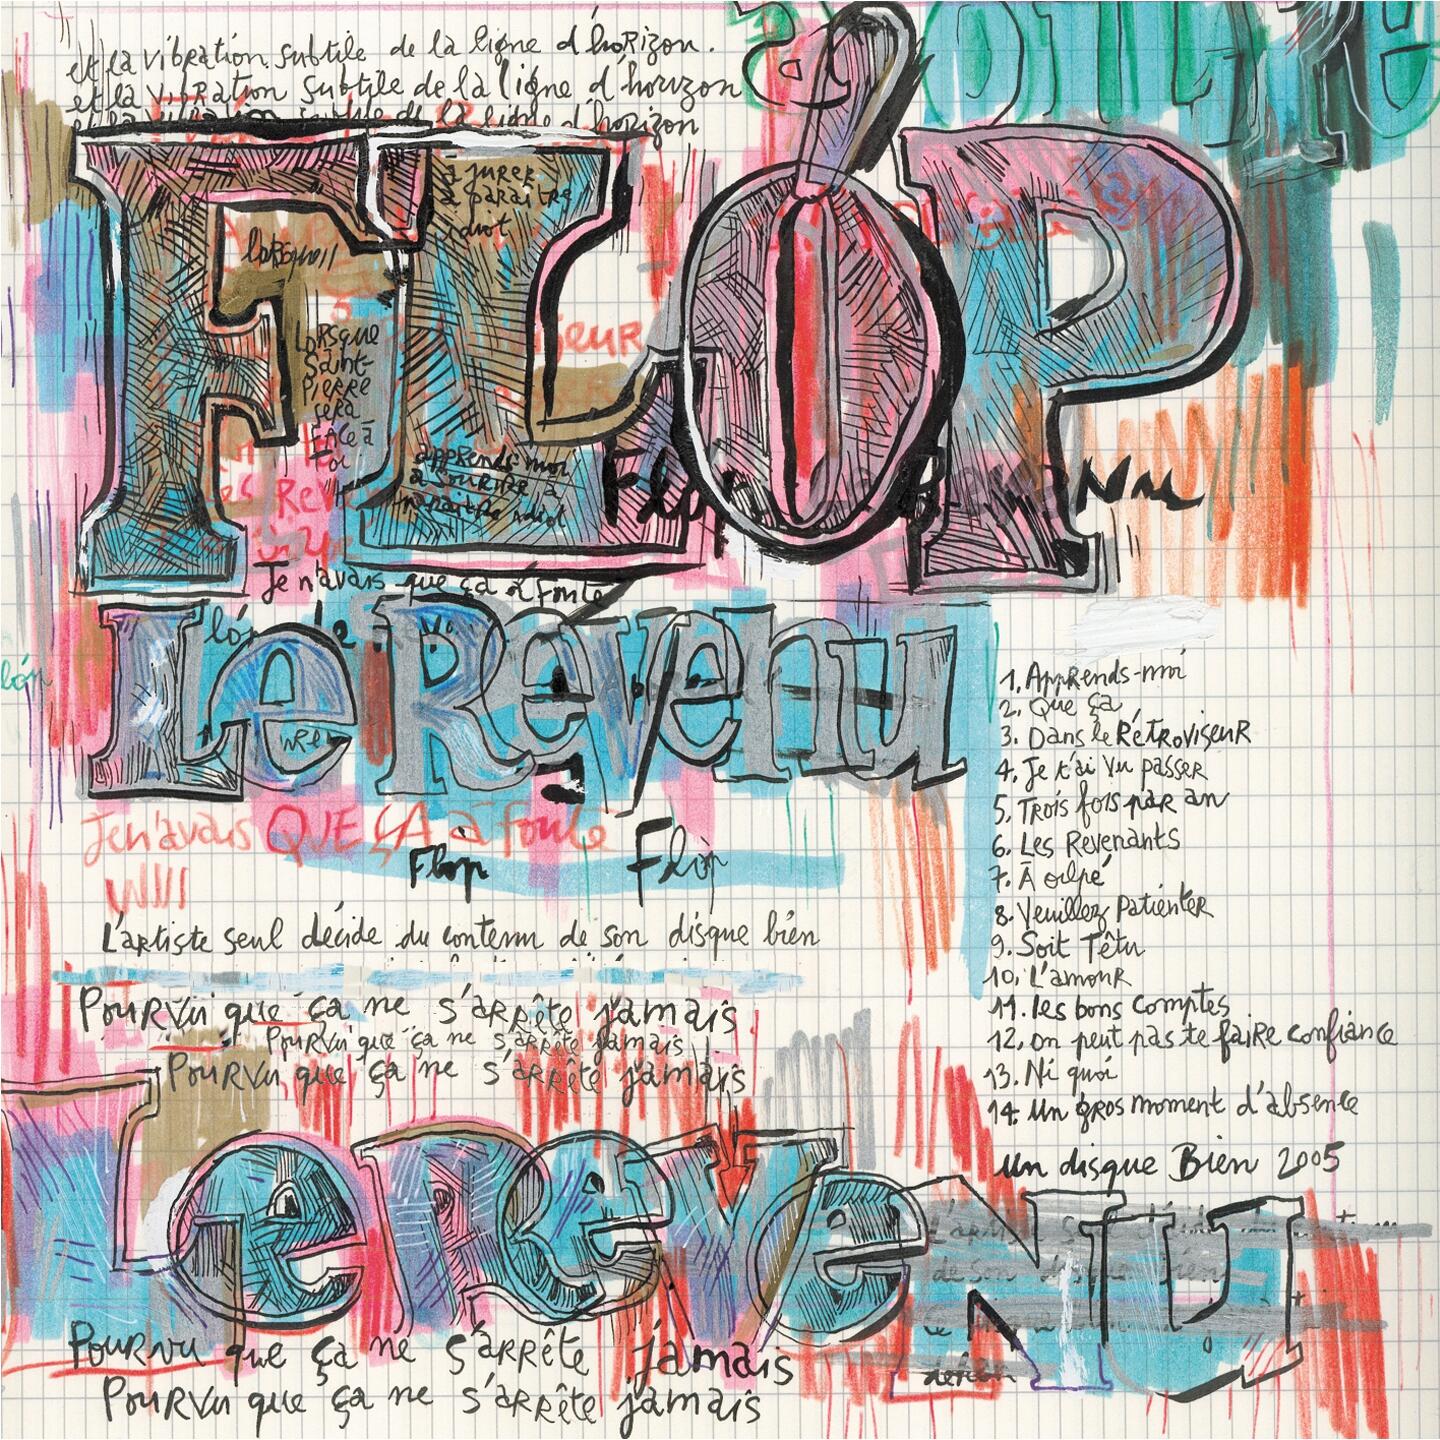 et la vibration subtile de la ligne d'horizon.
et la vibration subtile de la ligne d'horizon
et la vibration subtile de la ligne d'horizon
FLÓP
à jurer
à paraître
idiot
lorsqu'il
Lorsque
Saint-
Pierre
sera
face à
toi
apprends-moi
à sourire à
Je n'avais que ça à foutre
lón
Le Revenu
lón
Je n'avais QUE ÇA à foutre
Flop Flòp
L'artiste seul décide du contenu de son disque bien
Pourvu que ça ne s'arrête jamais
Pourvu que ça ne s'arrête jamais
Pourvu que ça ne s'arrête jamais
1. Apprends-moi
2. Que ça
3. Dans le Rétroviseur
4. Je t'ai vu passer
5. Trois fois par an
6. Les Revenants
7. À oilpé
8. Veuillez Patienter
9. Soit Têtu
10. L'amour
11. les bons comptes
12. on peut pas te faire confiance
13. Ni quoi
14. un gros moment d'absence
un disque Bien 2005
Le ReVeNU
Pourvu que ça ne s'arrête jamais
Pourvu que ça ne s'arrête jamais